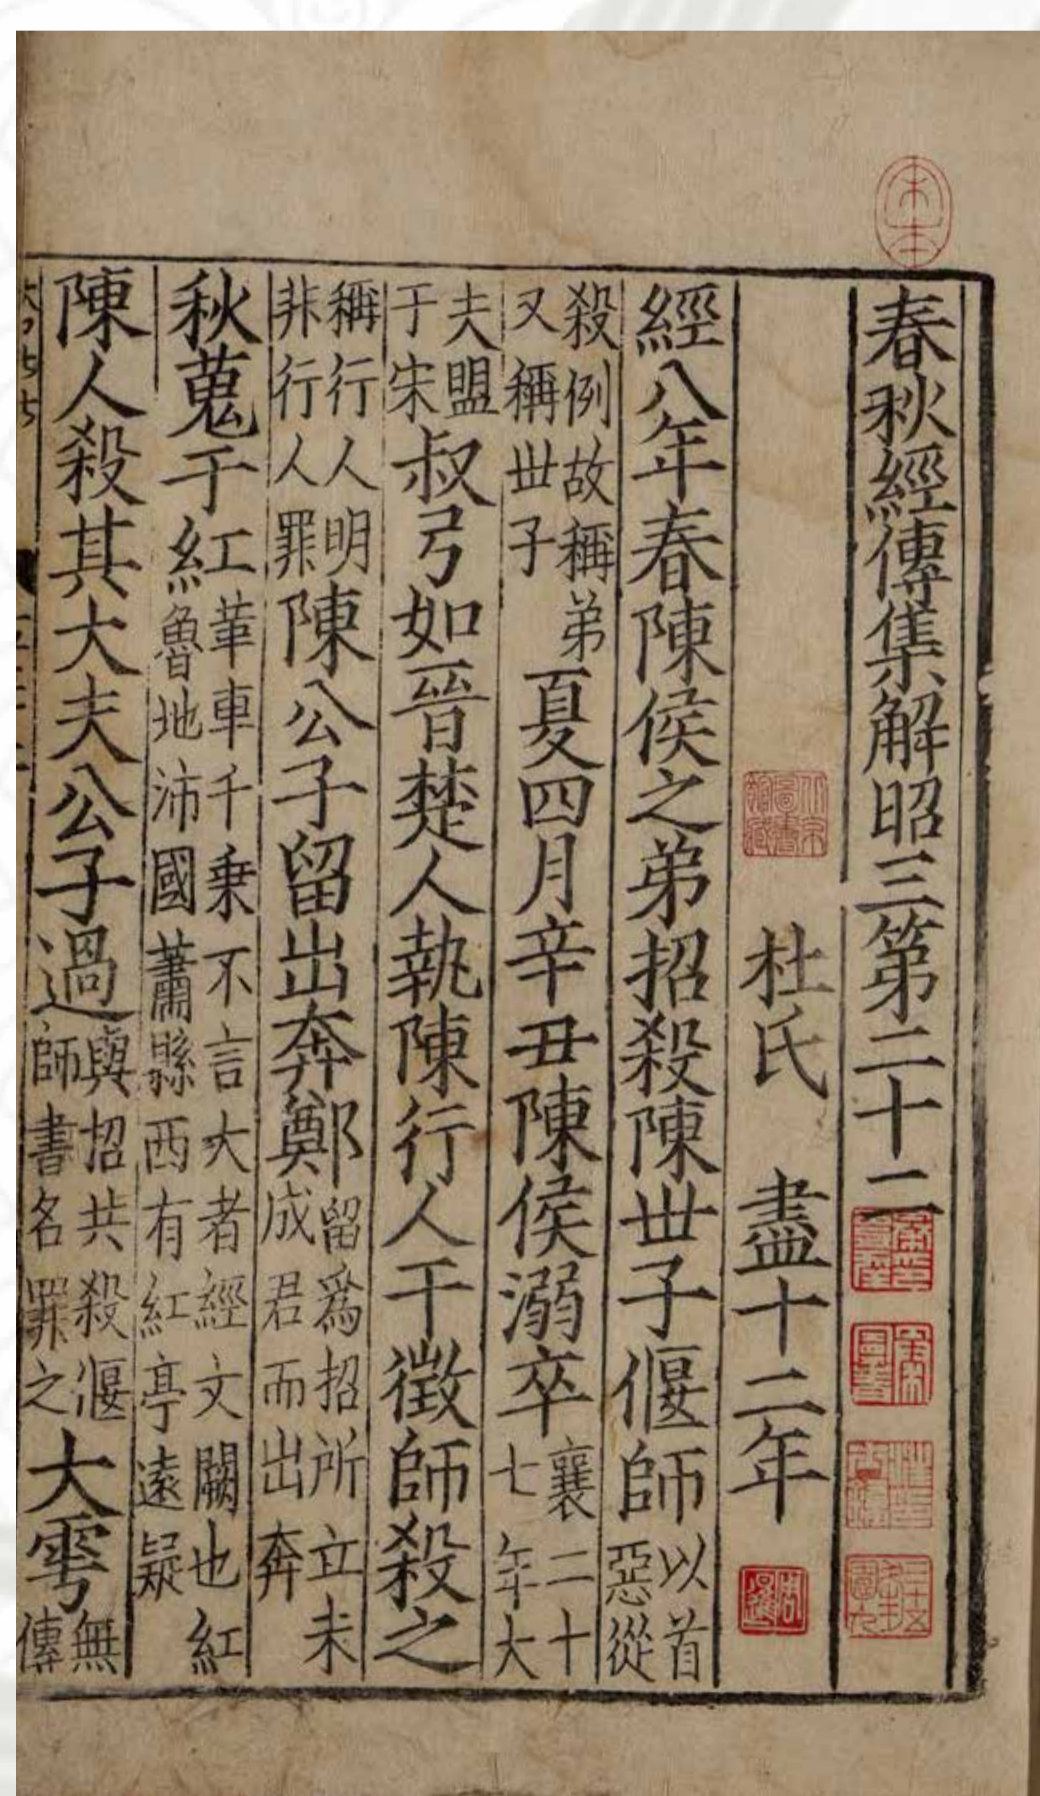 宋本
春秋經傳集解昭三第二十二
杜氏　盡十二年
周暹
經八年春陳侯之弟招殺陳丗子偃師以首惡從
殺例故稱弟又稱丗子夏四月辛丑陳侯溺卒襄二十七年大
夫盟于宋叔弓如晉楚人執陳行人干徵師殺之
稱行人明非行人罪陳公子留出奔鄭留爲招所立未成君而出奔
秋蒐于紅革車千乗不言大者經文闕也紅魯地沛國蕭縣西有紅亭遠疑
陳人殺其大夫公子過與招共殺偃師書名罪之大雩無傳